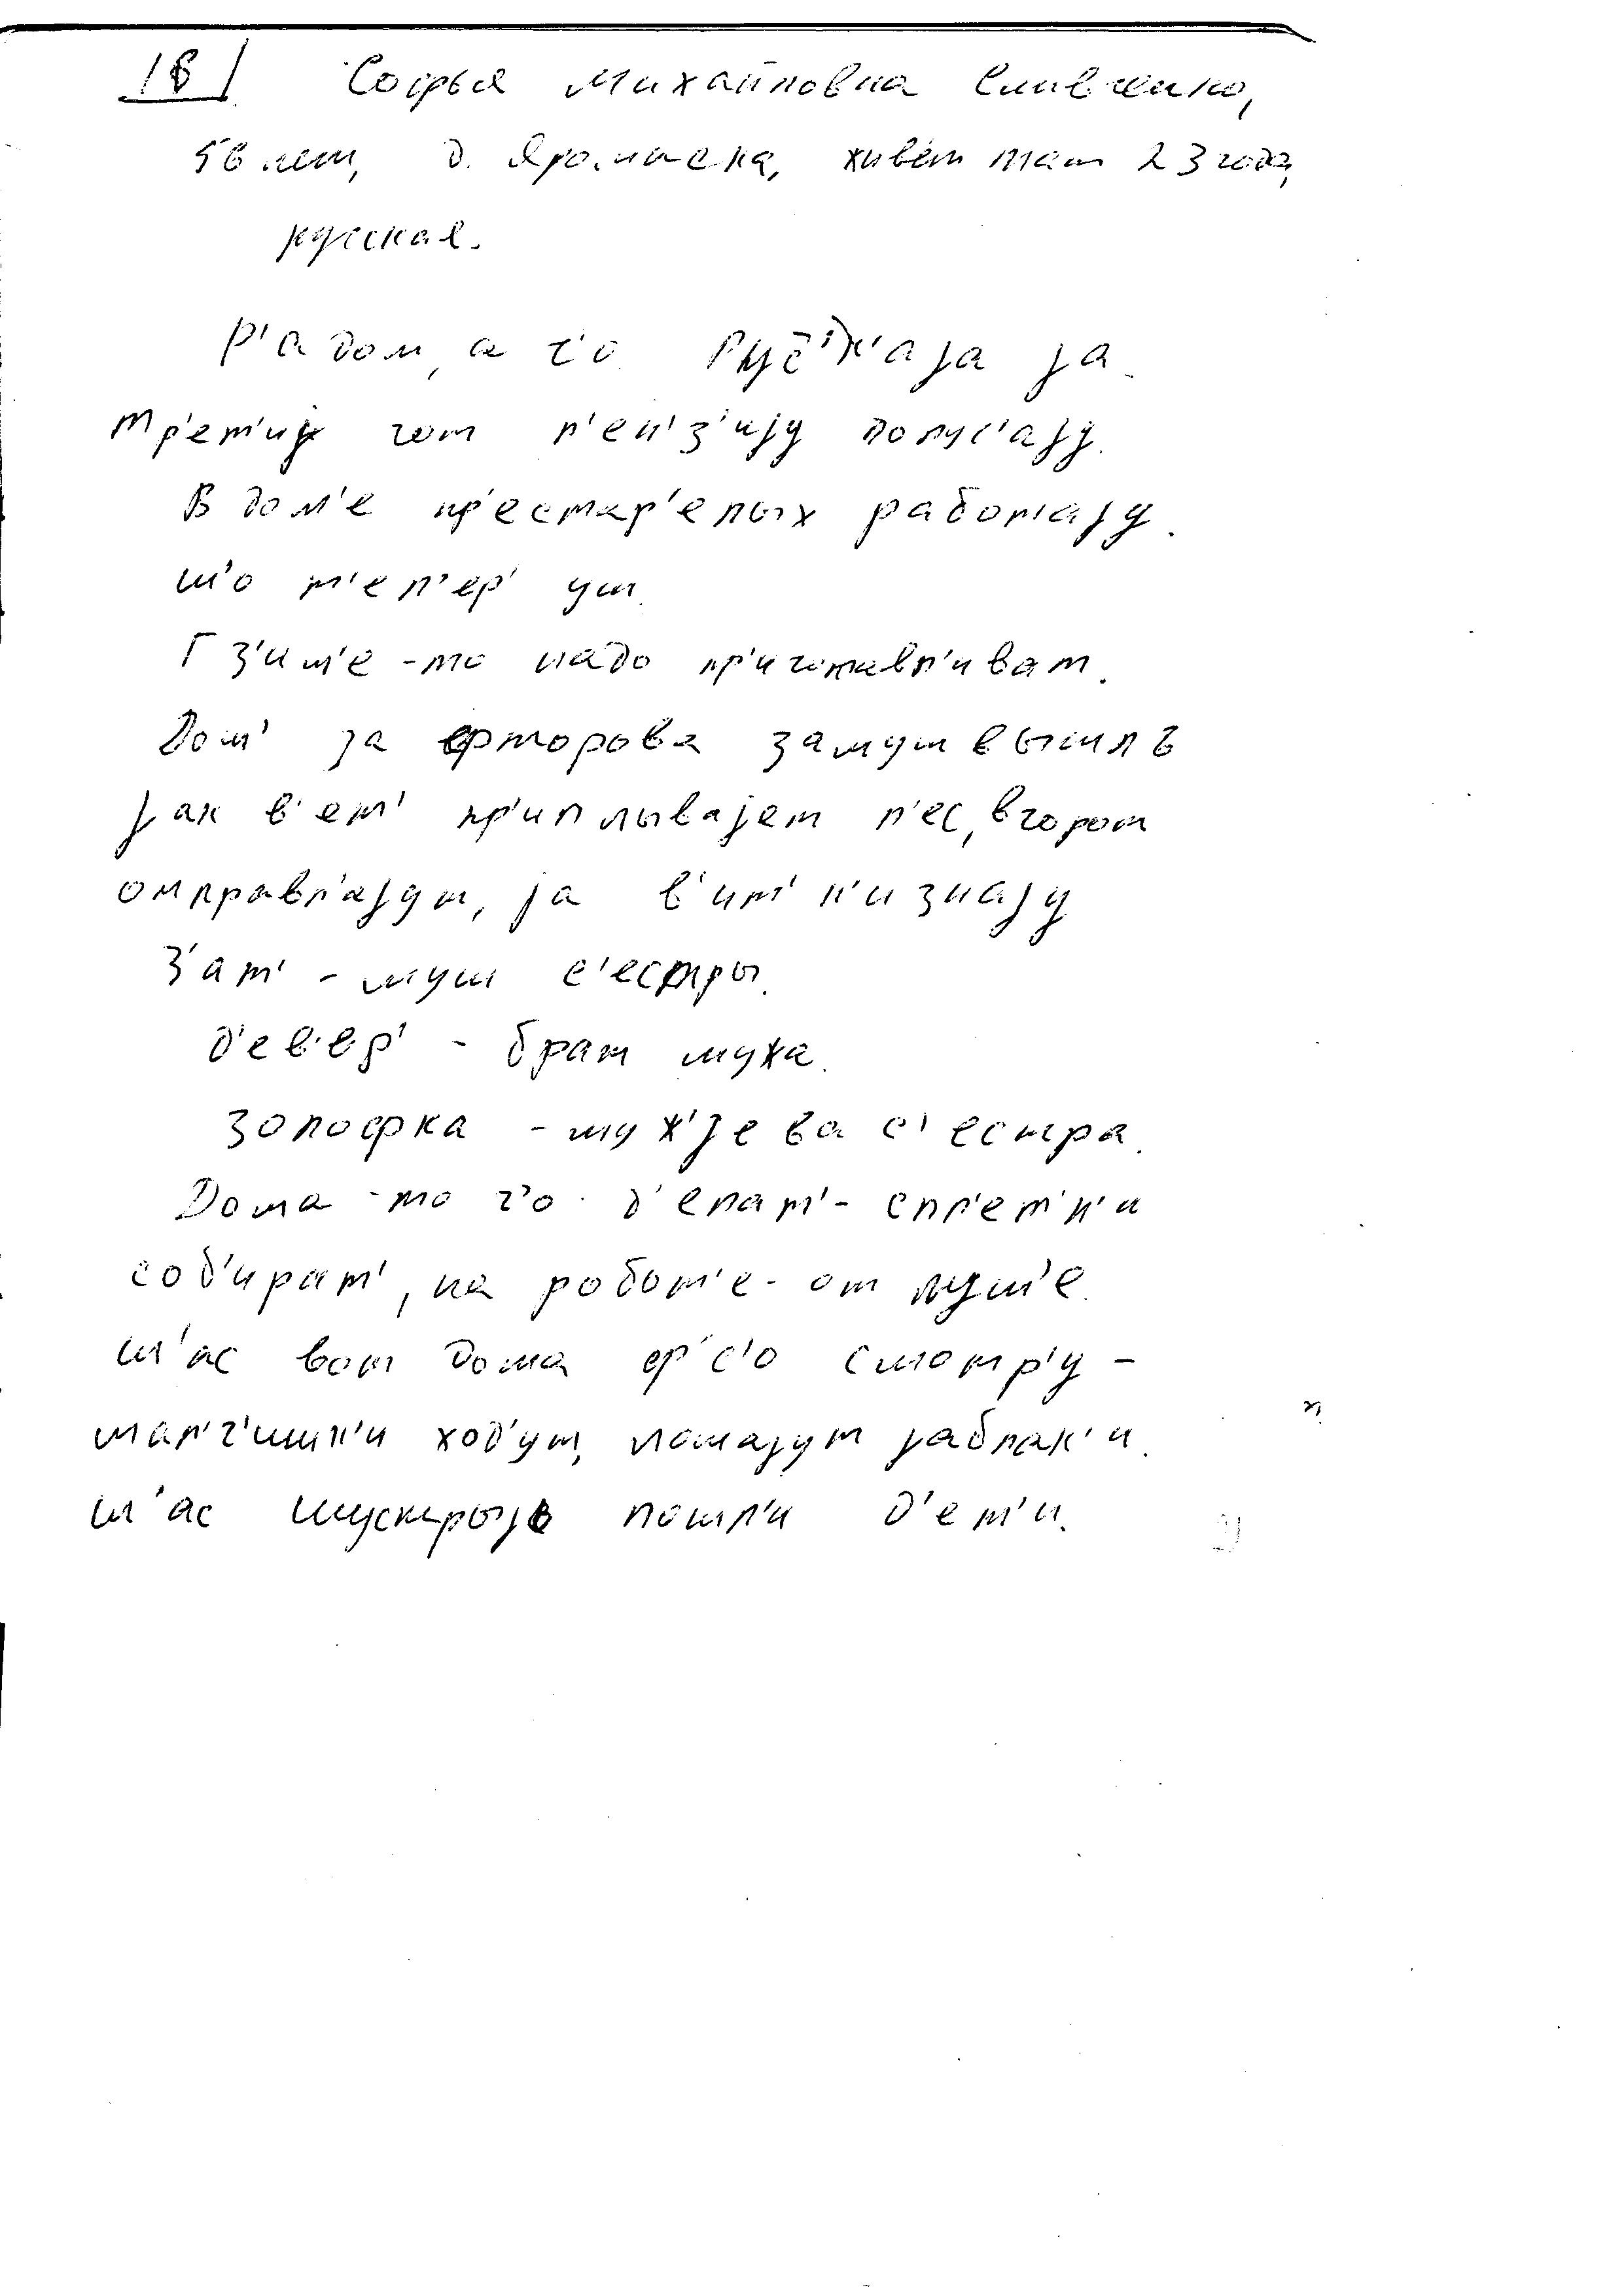 18
Софья Михайловна
56 лет, д. живёт там 23 года,
русская.
Р'адом, а ч'о ја
тр'ет'иј гот п'ен'з'ију получ'ају.
В дом'е пр'естар'елых работају.
ш'о т'еп'ер' ут
Г з'им'е-то надо пр'иготавл'иват.
Дот' за фторова замуш вышлъ
јак в'ет' пр'иплывајет л'ес, в горот
отправл'ајут, ја в'ит' н'и знају
З'ат' - муш с'естры.
д'ев'ер' - брат мужа.
золофка - муж'јева с'естра.
Дома-то ч'о д'елат' - спл'етн'и
соб'ират', на работ'е- от лутш'е.
ш'ас вот дома смотр'у -
мал'ч'ишк'и ход'ут, ломајут јаблак'и.
ш'ас шустрыјь пошл'и д'ет'и.